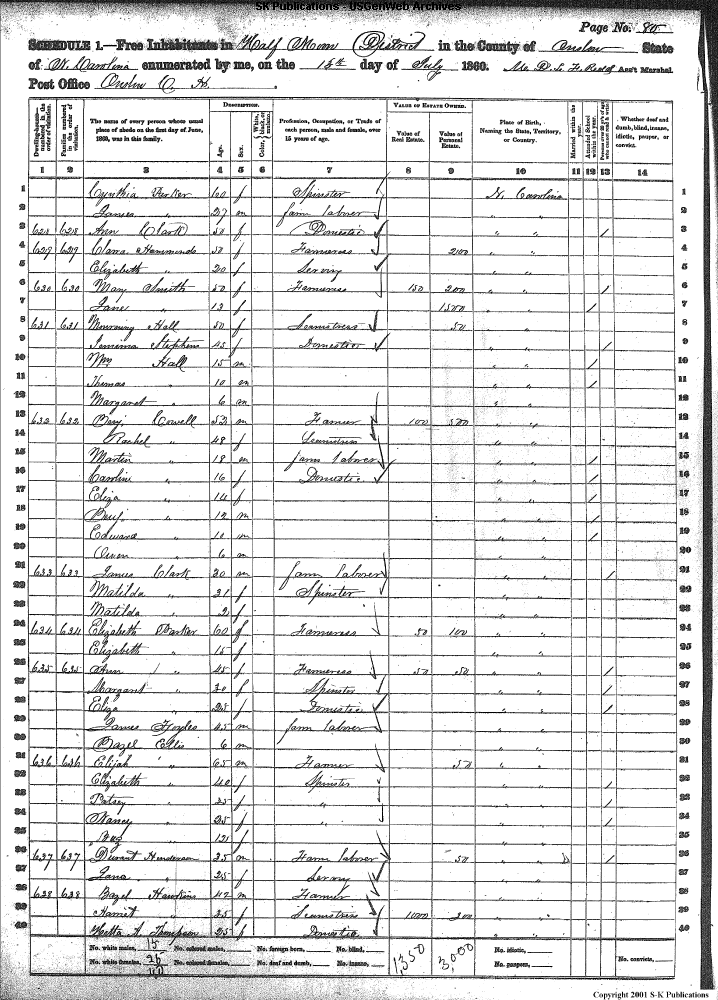 SK Publications - USGenWeb Archives
Page No. 80
SCHEDULE 1.—Free Inhabitants in Half Moon District in the County of Onslow State
of N. Carolina enumerated by me, on the 18th day of July 1860. Ass't Marshal.
Post Office Onslow C. H.
Dwelling-houses—numbered in the order of visitation.
Families numbered in the order of visitation.
The name of every person whose usual place of abode on the first day of June, 1860, was in this family.
DESCRIPTION.
Age.
Sex.
Color, White, black, or mulatto.
Profession, Occupation, or Trade of each person, male and female, over 15 years of age.
VALUE OF ESTATE OWNED.
Value of Real Estate.
Value of Personal Estate.
Place of Birth, Naming the State, Territory, or Country.
Married within the year.
Attended School within the year.
Whether deaf and dumb, blind, insane, idiotic, pauper, or convict.
1 2 3 4 5 6 7 8 9 10 11 12 13 14
1 Cynthia Parker 60 f Spinster N. Carolina 1
2 James " 27 m farm laborer " " 2
3 628 628 Ann Clark 50 f Domestic " " / 3
4 629 629 Clara Hammonds 50 f Farmeress 2100 " " 4
5 Elizabeth " 20 f Serving " " 5
6 630 630 Mary Smith 50 f Farmeress 150 200 " " / 6
7 Jane " 13 f 1500 " " / 7
8 631 631 Mourning Hall 50 f Seamstress 50 " " 8
9 Jemima Stephens 45 f Domestic " " / 9
10 Wm Hall 15 m " " / 10
11 Thomas " 10 m " " / 11
12 Margaret " 6 " " 12
13 632 632 Benj. Cowell 52 m Farmer 100 500 " " 13
14 Rachel " 48 f Seamstress " " 14
15 Martin " 18 m farm laborer " " / 15
16 Caroline " 16 f Domestic " " / 16
17 Eliza " 14 f " " / 17
18 Benj. " 12 m " " / 18
19 Edward " 10 m " " / 19
20 Owen " 6 m " " 20
21 633 633 James Clark 30 m farm laborer " " / 21
22 Matilda " 31 f Spinster " " 22
23 Matilda " 2 f " " 23
24 634 634 Elizabeth Barker 60 f Farmeress 50 100 " " 24
25 Elizabeth " 15 f " " 25
26 635 635 Ann " 45 f Farmeress 50 50 " " / 26
27 Margaret " 30 f Spinster " " / 27
28 Eliza " 25 f Domestic " " / 28
29 James Foyles 45 m farm laborer " " 29
30 Bazel Ellis 6 m " " 30
31 636 636 Elijah " 65 m Farmer 50 " " 31
32 Elizabeth " 40 f Spinster " " / 32
33 Patsey " 35 f " " " / 33
34 Nancy " 25 f " " " / 34
35 12 f " " 35
36 637 637 Durant Henderson 25 m Farm laborer 50 " " / 36
37 Jana " 25 f Serving " " 37
38 638 638 Bazel Hawkins 42 m Farmer " " 38
39 Harriet " 35 f Seamstress 1000 200 " " 39
40 Hetta A. Thompson 25 f Domestic " " 40
No. white males, 15 No. colored males, No. foreign born, No. blind, 1,350 3,000 No. idiotic, No. convicts,
No. white females, 25 No. colored females, No. deaf and dumb, No. insane, No. paupers,
40
Copyright 2001 S-K Publications